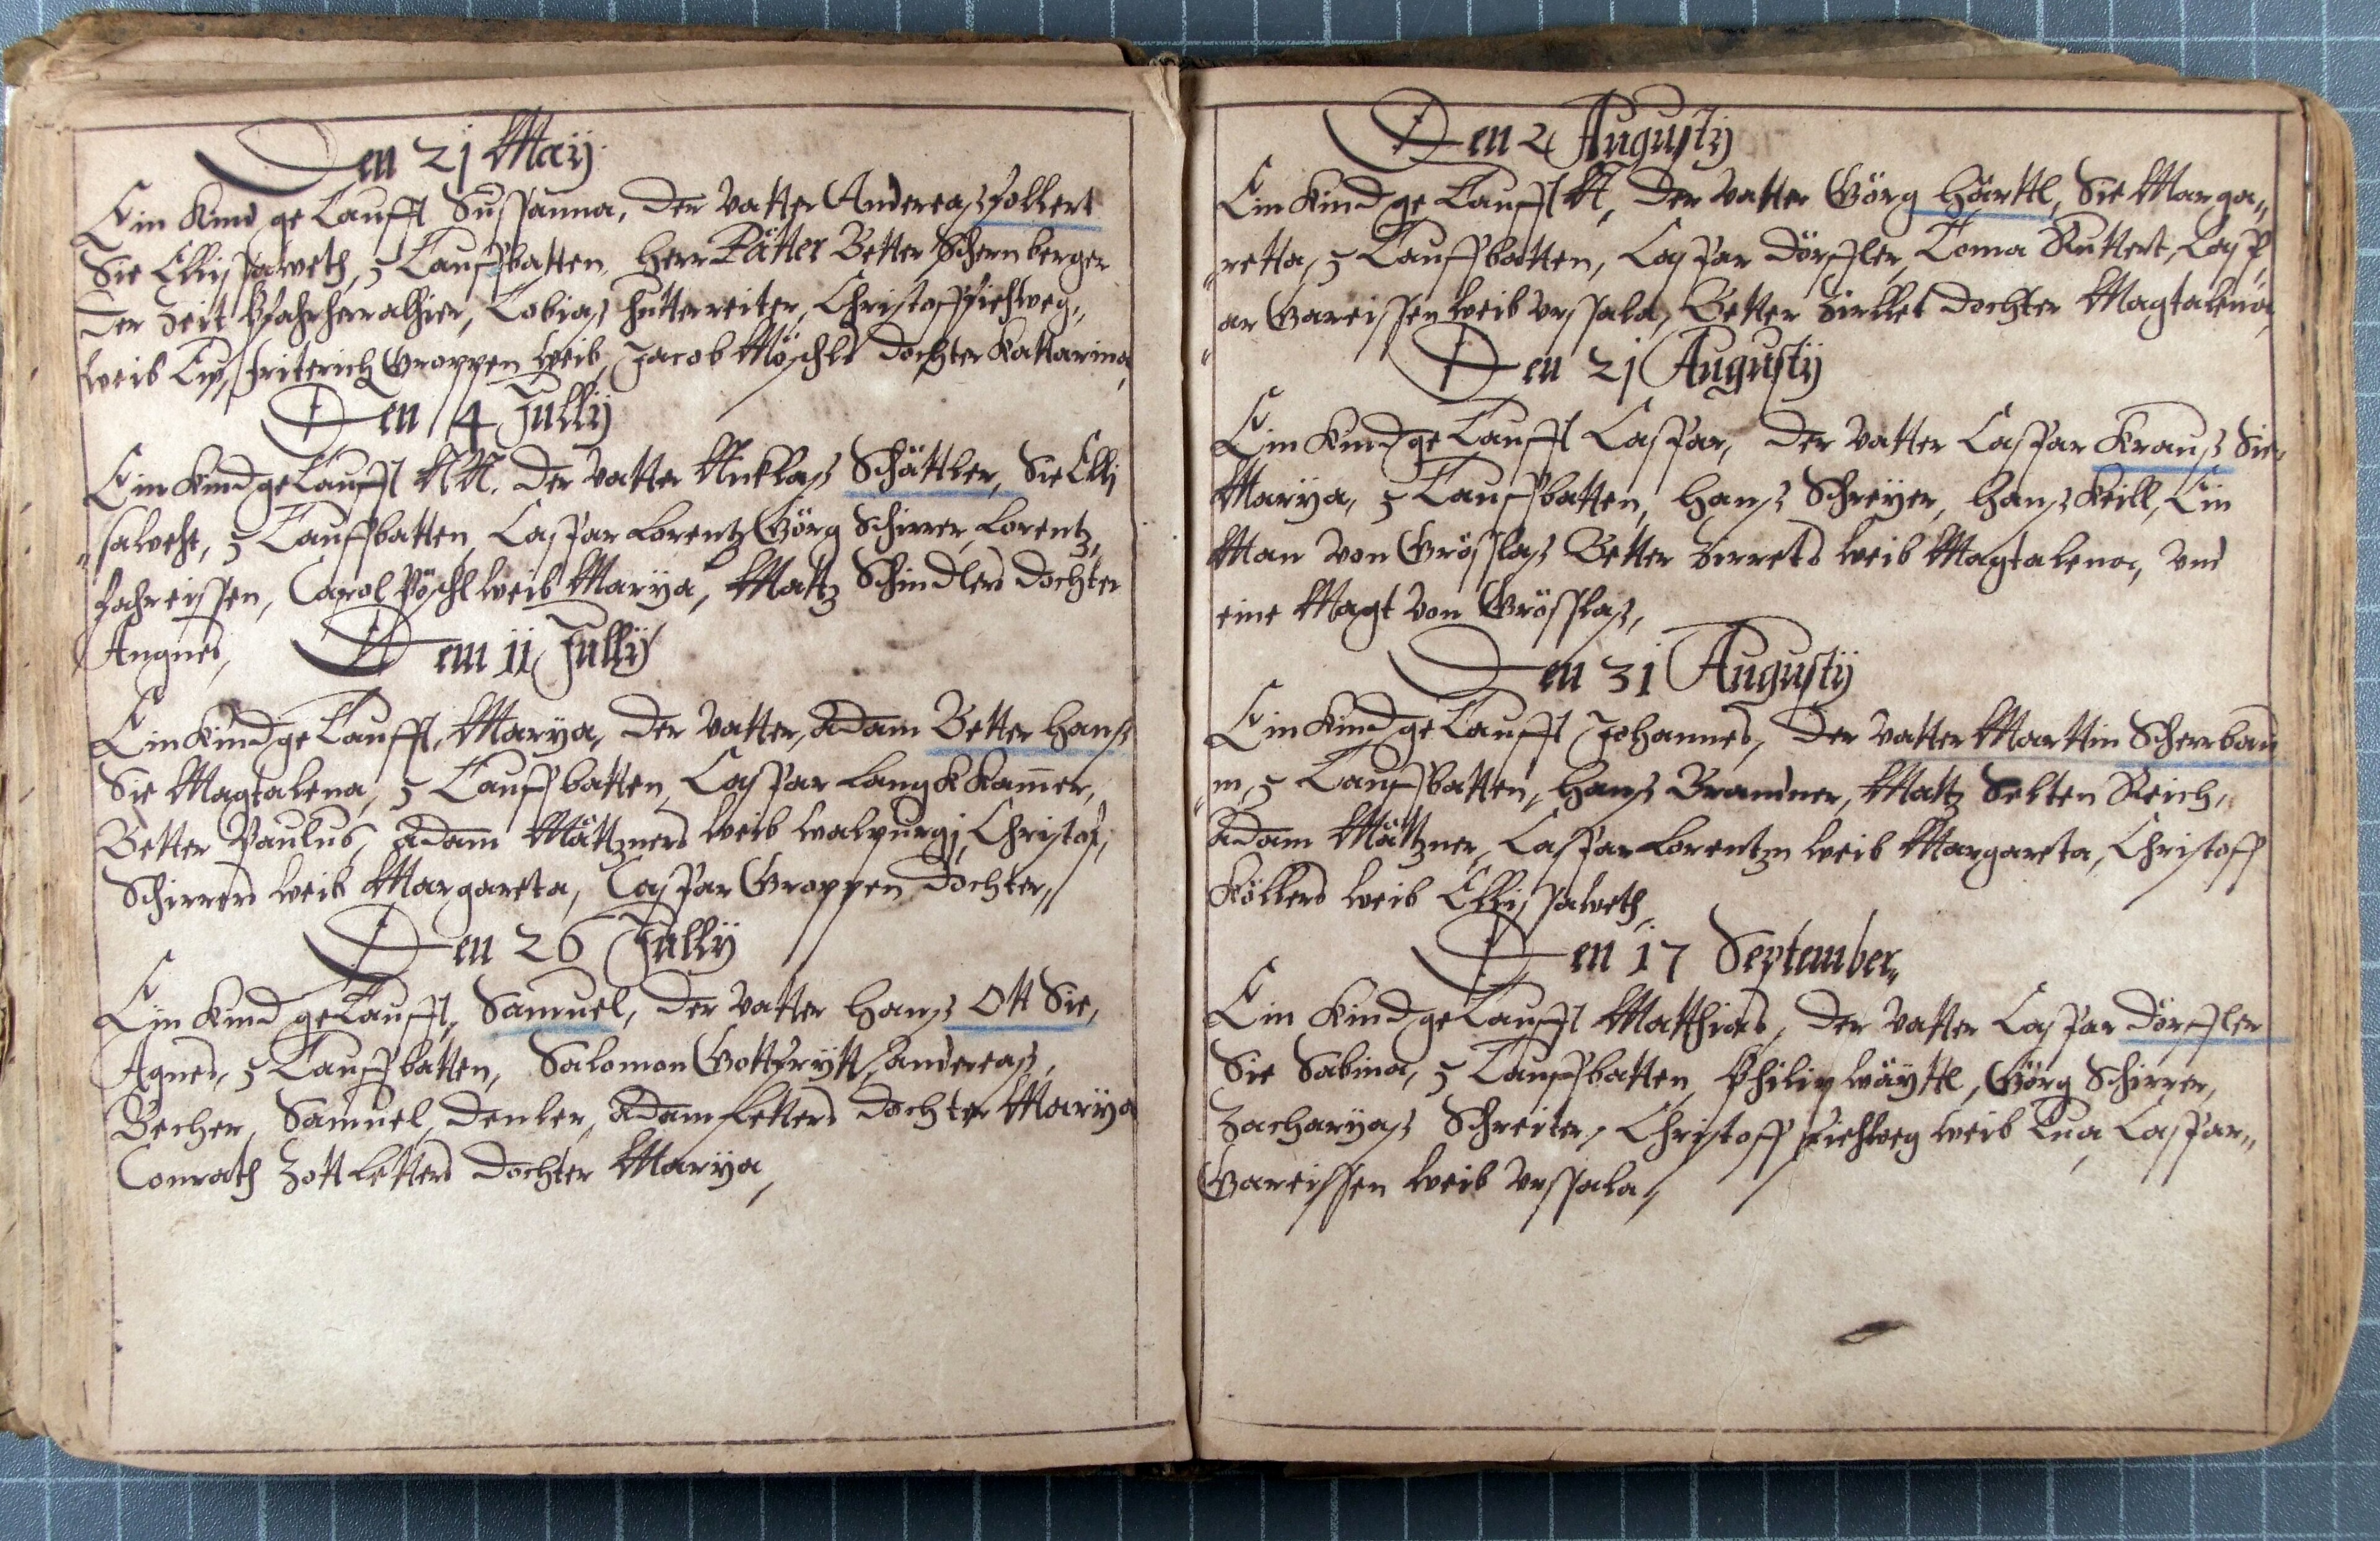 Den 21 Maÿ
Ein Kind getaufft Sussanna, Der Vatter Andereaß
Sie Ellissaweth, 5 Tauffbatten Herr Pätter Better Schernberger
Der Zeit Pfahrherralhier, Tobiaß Hutterreiter, Christoff Fiehweg,,
weib Friterich Groppen weib, Jacob Möschls Dochter Kattarina,
Den 4 Jullÿ
Ein Kind getaufft NN. Der Vatter Nicklaß Schättler, Sie Elli
,,saweht, 5 Tauffbatten, Casspar Lorentz Görg Schirrer, Lorentz,
Carol Pöschl weib Marÿa, Mattz Schindlers Dochter
Angnes,
Den 11 Jullÿ
Ein Kind getaufft, Marÿa, Der Vatter, Adam Better Hanß
Sie Magtalena, 5 Tauffbatten, Casspar Langkkam̄er,
Better Paulus, Adam Mättzners weib walpurgj, Christof,
Schirrers weib Margareta, Casspar Groppen Dochter,,
Den 26 Jullÿ
Ein Kind getaufft, Samuel, Der Vatter Hanß Ott Sie,
Agnes, 5 Tauffbatten, Salomon Gottfrÿtt, andereaß,
Becher, Samuel, Denler, Adam Letters Dochter Marÿa
Conrath Zottletters Dochter Marÿa,
Den 2 Augustÿ
Ein Kind getaufft N, Der Vatter Görg Härttl, Sie Marga,,
,,retta, 5 Tauffbatten, Casspar Dörffler, Toma Ruttert, Cassp,,
,,ar Gareissen weib Urssala, Better Zirklet Dochter Magtalena,
Den 21 Augustÿ
Ein Kind getaufft Casspar, Der Vatter Casspar Krauß Sie,
Marÿa, 5 Tauffbatten, Hanß Schreÿer, Hanß Keill, Ein
Man von Grösslaß Better Zirrets weib Magtalena, Vnd
eine Magt von Grösslaß,
Den 31 Augustÿ
Ein Kind getaufft Johannes, Der Vatter Marttin Scherrbau
,,m, 5 Tauffbatten, Hanß Brandner, Mattz Selten Reich,,
Adam Mättzner, Casspar Lorentzn weib Margareta, Christoff
Köllers weib Ellissaweth,
Den 17 September,,
Ein Kind getaufft Matthias, Der Vatter Casspar Dörffler
Sie Sabina, 5 Tauffbatten, Philip Wäÿttl, Görg Schirrer,
Zacharÿaß Schreiter, Christoff Fiehweg weib Eua, Casspar,,
Gareissen weib Urssala,